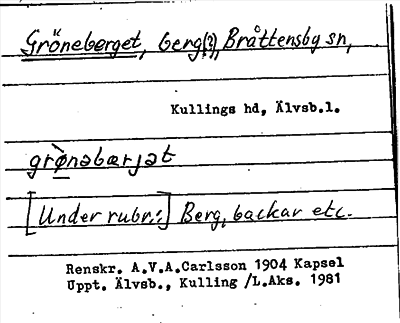 Gröneberget, berg(?), Bråttensby sn,
Kullings hd, Älvsb.l.
grø̀nabærjat
[Under rubr.:] Berg, backar etc.
Renskr. A.V.A.Carlsson 1904 Kapsel
Uppt. Älvsb., Kulling /L.Aks. 1981